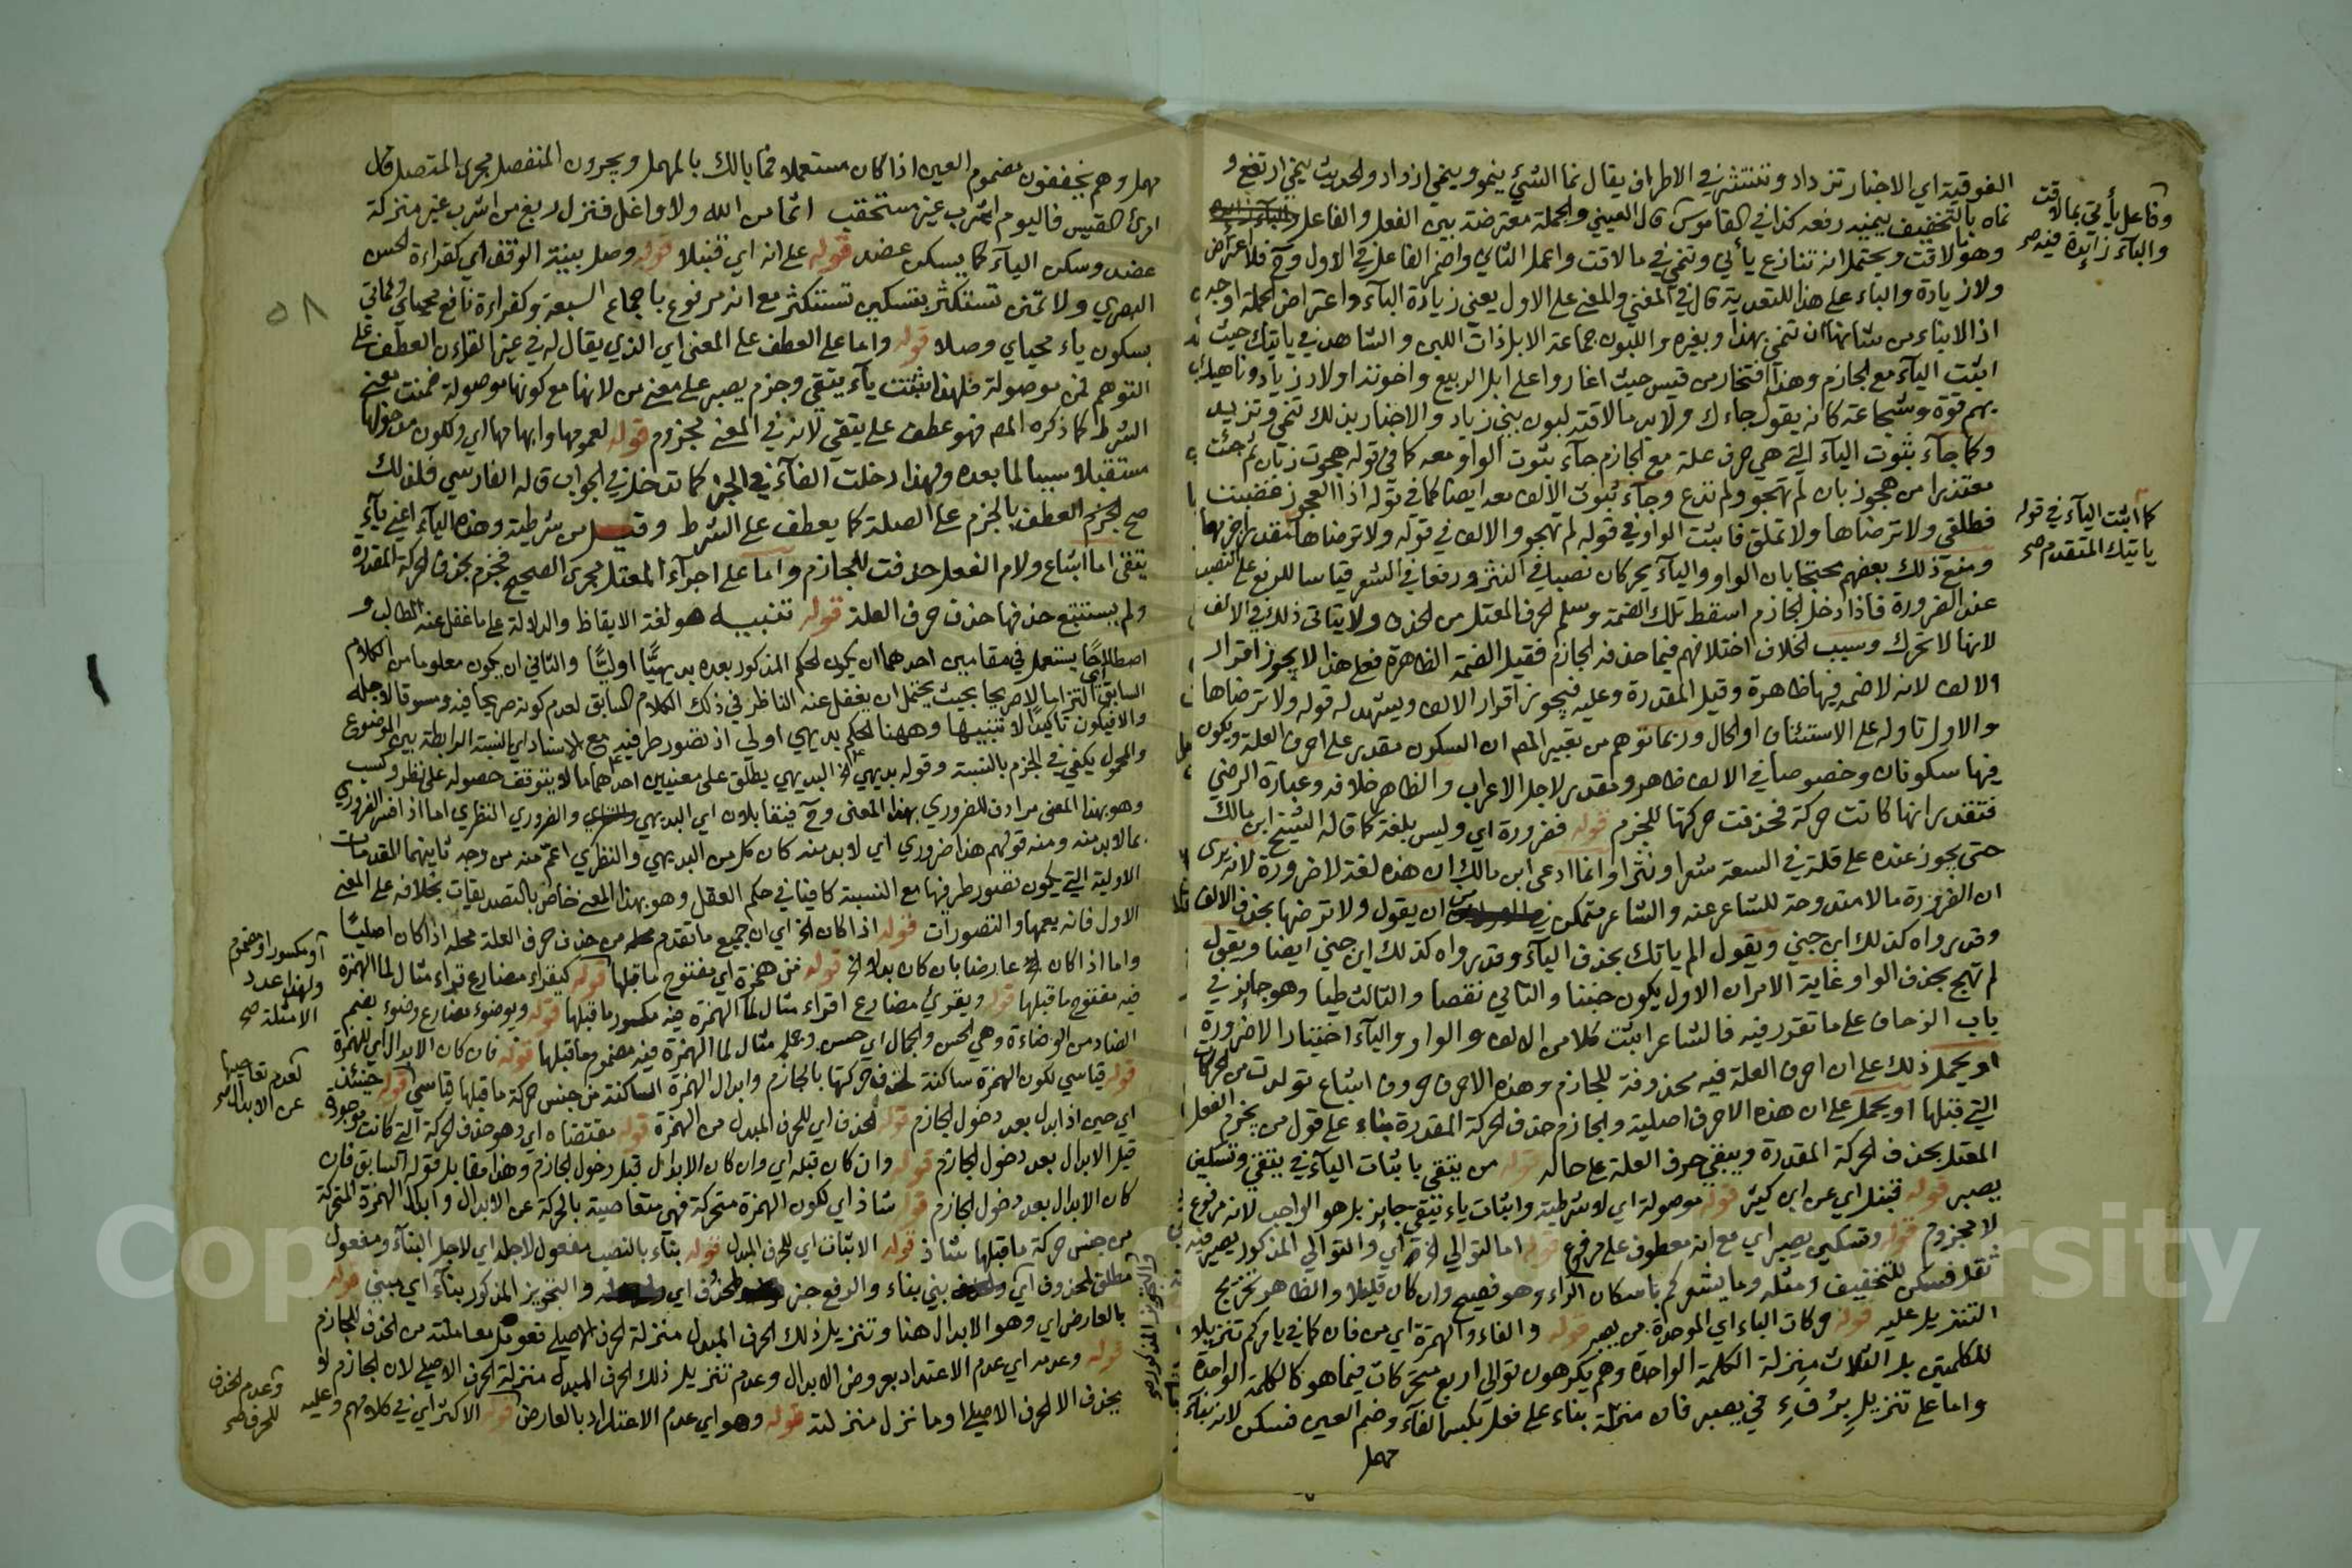 الفوقية اي الاخبار تزداد وتنتشر في الاطراف يقال نما الشئ ينمو وينمي ازداد والحديث ينمي ارتفع و
نماه بالتخفيف ينميه رفعه كذا في القاموس قال العيني والجملة معترضة بين الفعل والفاعل
وفاعل يأتي بما لاقت
والبآء زائدة فيه صح
وهو لاقت ويحتمل انه تنازع يأتي وتنمي في ما لاقت واعمل الثاني واضمر الفاعل في الاول وح فلا اعتراض
ولا زيادة والباء على هذا للتعدية قال في المغني والمعنى على الاول يعني زيادة البآء واعتراض الجملة اوجه
اذ الانباء من شانها ان تنمي بهذا وبغيره واللبون جماعة الابل ذات اللبن والشاهد في ياتيك حيث
اثبت اليآء مع الجازم وهذا افتخار من قيس حيث اغاروا على ابل الربيع واخوته اولاد زياد وناهيك
بهم قوة وشجاعة كانه يقول جاءك ولا بد ما لاقته لبون بني زياد والاخبار بذلك تنمي وتزيد
وكما جآء ثبوت اليآء التي هي حرف علة مع الجازم جآء ثبوت الواو معه كما في قوله هجوت زبان ثم جئت
معتذرا من هجو زبان لم تهجو ولم تدع وجآء ثبوت الالف معه ايضا كما في قوله اذا العجوز غضبت
فطلقي ولا ترضاها ولا تملق فاثبت الواو في قوله لم تهجو والالف في قوله ولا ترضاها
كما اثبت اليآء في قوله
ياتيك المتقدم صح
ومنع ذلك بعضهم محتجا بان الواو واليآء يحركان نصبا في النثر ورفعا في الشعر قياسا للرفع على النصب
عند الضرورة فاذا دخل الجازم اسقط تلك الضمة وسلم حرف المعتل من الحذف ولا يتاتى ذلك في الالف
لانها لا تحرك وسبب الخلاف اختلافهم فيما حذفه الجازم فقيل الضمة الظاهرة فعلى هذا لا يجوز اقرار
الالف لانه لا ضمة فيها ظاهرة وقيل المقدرة وعليه فيجوز اقرار الالف ويشهد له قوله ولا ترضاها
والاول تاوله على الاستئناف او الحال وربما توهم من تعبير المص ان السكون مقدر على احرف العلة ويكون
فيها سكونان وخصوصا في الالف ظاهر ومقدر لاجل الاعراب والظاهر خلافه وعبارة الرضي
فتقدر انها كانت حركة فحذفت حركتها للجزم قوله فضرورة اي وليس بلغة كما قاله الشيخ ابن مالك
حتى يجوز عنده على قلة في السعة شعرا ونثرا وانما ادعى ابن مالك ان هذه لغة لا ضرورة لانه يرى
ان الضرورة ما لا مندوحة للشاعر عنه والشاعر متمكن من ان يقول ولا ترضها بحذف الالف
وقد رواه كذلك ابن جني ويقول الم ياتك بحذف اليآء وقد رواه كذلك ابن جني ايضا ويقول
لم تهج بحذف الواو غاية الامر ان الاول يكون خبنا والثاني نقصا والثالث طيا وهو جايز في
باب الزحاف على ما تقرر فيه فالشاعر اثبت كلا من الالف والواو واليآء اختيارا لا ضرورة
او يحمل ذلك على ان احرف العلة فيه محذوفة للجازم وهذه الاحرف حروف اشباع تولدت من الحركات
التي قبلها او يحمل على ان هذه الاحرف اصلية والجازم حذف الحركة المقدرة بناء على قول من يجزم الفعل
المعتل بحذف الحركة المقدرة ويبقي حرف العلة على حاله قوله من يتقي باثبات اليآء في يتقي وتسكين
يصبر قوله قنبل اي عن ابن كثير قوله موصولة اي لا شرطية واثبات ياء يتقي جايز بل هو الواجب لانه مرفوع
لا مجزوم قوله وتسكين يصبر اي مع انه معطوف على مرفوع قوله اما لتوالي الخ اي والتوالي المذكور يصير فيه
ثقل فسكن للتخفيف ومثله وما يشعركم باسكان الراء وهو فصيح وان كان قليلا والظاهر تخريج
التنزيل عليه قوله حركات الباء اي الموحدة من يصبر قوله والفاء والهمزة اي من فان كما في يامركم تنزيلا
للكلمتين بل الثلاث منزلة الكلمة الواحدة وهم يكرهون توالي اربع متحركات فيما هو كالكلمة الواحدة
واما على تنزيل بِرُفَءِ في يصبر فان منزلة بناء على فعل بكسر الفآء وضم العين فسكن لانه بنآء
مهمل
مهمل وهم يخففون مضموم العين اذا كان مستعملا فما بالك بالمهمل ويجرون المنفصل مجرى المتصل قال
امرئ القيس فاليوم اشرب غير مستحقب اثما من الله ولا واغل فنزل ربغ من اشرب غير منزلة
عضد وسكن اليآء كما يسكن عضد قوله على انه اي قنبلا قوله وصل بنية الوقف اي كقراءة الحسن
البصري ولا تمنن تستكثر بتسكين تستكثر مع انه مرفوع باجماع السبعة وكقراءة نافع محياي ومماتي
بسكون ياء محياي وصلا قوله واما على العطف على المعنى اي الذي يقال له في غير القراءن العطف على
التوهم لمن موصولة فلهذا ثبتت يآء يتقي وجزم يصبر على معنى من لانها مع كونها موصولة ضمنت معنى
الشرط كما ذكره المص فهو عطف على يتقي لانه في المعنى مجزوم قوله لعمومها وابهامها اي ولكون مدخولها
مستقبلا سببا لما بعده ولهذا دخلت الفآء في الخبر كما تدخل في الجواب قاله الفارسي فلذلك
صح الجزم العطف بالجزم على الصلة كما يعطف على الشرط وقيل من شرطية وهذه اليآء اعني يآء
يتقي اما اشباع ولام الفعل حذفت للجازم واما على اجرآء المعتل مجرى الصحيح فجزم بحذف الحركة المقدرة
ولم يستتبع حذفها حذف حرف العلة قوله تنبيه هو لغة الايقاظ والدلالة على ما غفل عنه الطالب و
اصطلاحًا يستعمل في مقامين احدهما ان يكون الحكم المذكور بعده بديهيًّا اوليًّا والثاني ان يكون معلوما من الكلام
السابق اي التزاما لا صريحا بحيث يحتمل ان يغفل عنه الناظر في ذلك الكلام السابق لعدم كونه صريحا فيه ومسوقا لاجله
والا فيكون تاكيدًا لا تنبيها وههنا الحكم بديهي اولي اذ تصور طرفيه مع الاسناد اي النسبة الرابطة بين الموضوع
والمحمول يكفي في الجزم بالنسبة وقوله بديهي الخ البديهي يطلق على معنيين احدهما ما لا يتوقف حصوله على نظر وكسب
وهو بهذا المعنى مرادف للضروري بهذا المعنى وح فيتقابلان اي البديهي والضروري النظري اما اذا فسر الضروري
بما لا بد منه ومنه قولهم هذا ضروري اي لا بد منه كان كل من البديهي والنظري اعم منه من وجه ثانيهما المقدمات
الاولية التي يكون تصور طرفيها مع النسبة كافيا في حكم العقل وهو بهذا المعنى خاص بالتصديقات بخلافه على المعنى
الاول فانه يعمها والتصورات قوله اذا كان الخ اي ان جميع ما تقدم من حذف حرف العلة محله اذا كان اصليًا
واما اذا كان عارضا بان كان بدلا الخ قوله من همزة اي مفتوح ما قبلها قوله كيقراء مضارع قراء مثال لما الهمزة
أو مكسور او مضموم
ولهذا عدد
الامثلة صح
فيه مفتوح ما قبلها قوله ويقرئ مضارع اقراء مثال لما الهمزة فيه مكسور ما قبلها قوله ويوضوء مضارع وضوء بضم
الضاد من الوضاءة وهي الحسن والجمال اي حسن وجمل مثال لما الهمزة فيه مضموم ما قبلها قوله فان كان الابدال اي للهمزة
قوله قياسي لكون الهمزة ساكنة لحذف حركتها بالجازم وابدال الهمزة الساكنة من جنس حركة ما قبلها قياسي قوله حينئذ
لعدم تعاصيها
عن الابدال صح
اي حين اذ ابدل بعد دخول الجازم قوله لحذف اي للحرف المبدل من الهمزة قوله مقتضاه اي وهو حذف الحركة التي كانت موجودة
قبل الابدال بعد دخول الجازم قوله وان كان قبله اي وان كان الابدال قبل دخول الجازم وهذا مقابل قوله السابق فان
كان الابدال بعد دخول الجازم قوله شاذ اي لكون الهمزة متحركة فهي متعاصية بالحركة عن الابدال وابدال الهمزة المتحركة
من جنس حركة ما قبلها شاذ قوله الاثبات اي للحرف المبدل قوله بناء بالنصب مفعول لاجله اي لاجل البنآء ومفعول
مطلق لمحذوف اي بني بناء والرفع خبر لمحذوف اي والتجويز المذكور بنآء اي مبني قوله
والتجويز المذكور صح
بالعارض اي وهو الابدال هنا وتنزيل ذلك الحرف المبدل منزلة الحرف الاصلي فعومل معاملته من الحذف للجازم
قوله وعدمه اي عدم الاعتداد بعروض الابدال وعدم تنزيل ذلك الحرف المبدل منزلة الحرف الاصلي لان الجازم لا
وعدم الحذف
للحرف صح
يحذف الا الحرف الاصلي او ما نزل منزلته قوله وهو اي عدم الاعتداد بالعارض قوله الاكثر اي في كلامهم وعليه
٥٨
Copyright © King Saud University